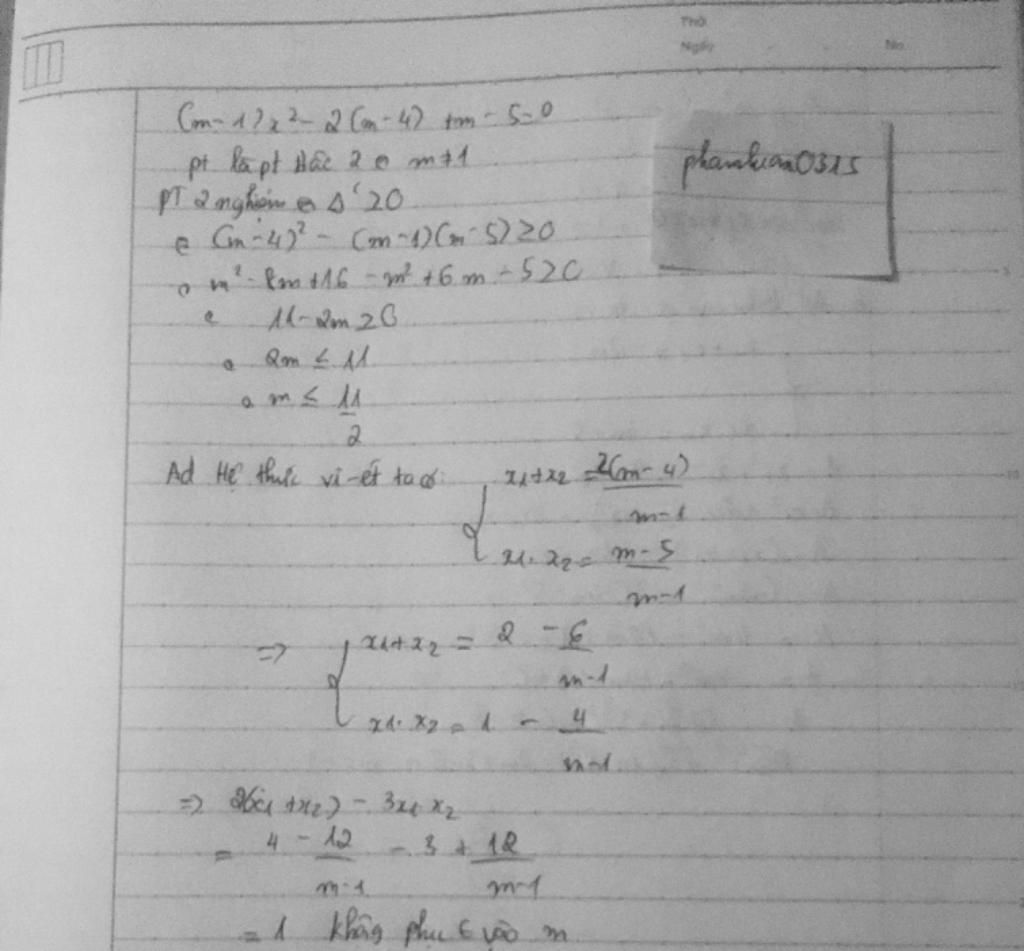 Thứ
Ngày No.
(m-1)x² - 2(m-4) +m - 5=0
phamluan0315
pt là pt bậc 2 ⇔ m≠1
PT 2 nghiệm ⇔ Δ' ≥0
⇔ (m-4)² - (m-1)(m-5) ≥0
⇔ m² - 8m +16 - m² +6m - 5 ≥0
⇔ 11-2m ≥0
⇔ 2m ≤ 11
⇔ m ≤ 11/2
Ad Hệ thức vi-ét ta có: { x1+x2 = 2(m-4)/m-1
x1. x2 = m-5/m-1
=> { x1+x2 = 2 - 6/m-1
x1. x2 = 1 - 4/m-1
=> 2(x1+x2) - 3x1x2
= 4 - 12/m-1 - 3 + 12/m-1
= 1 không phụ t vào m